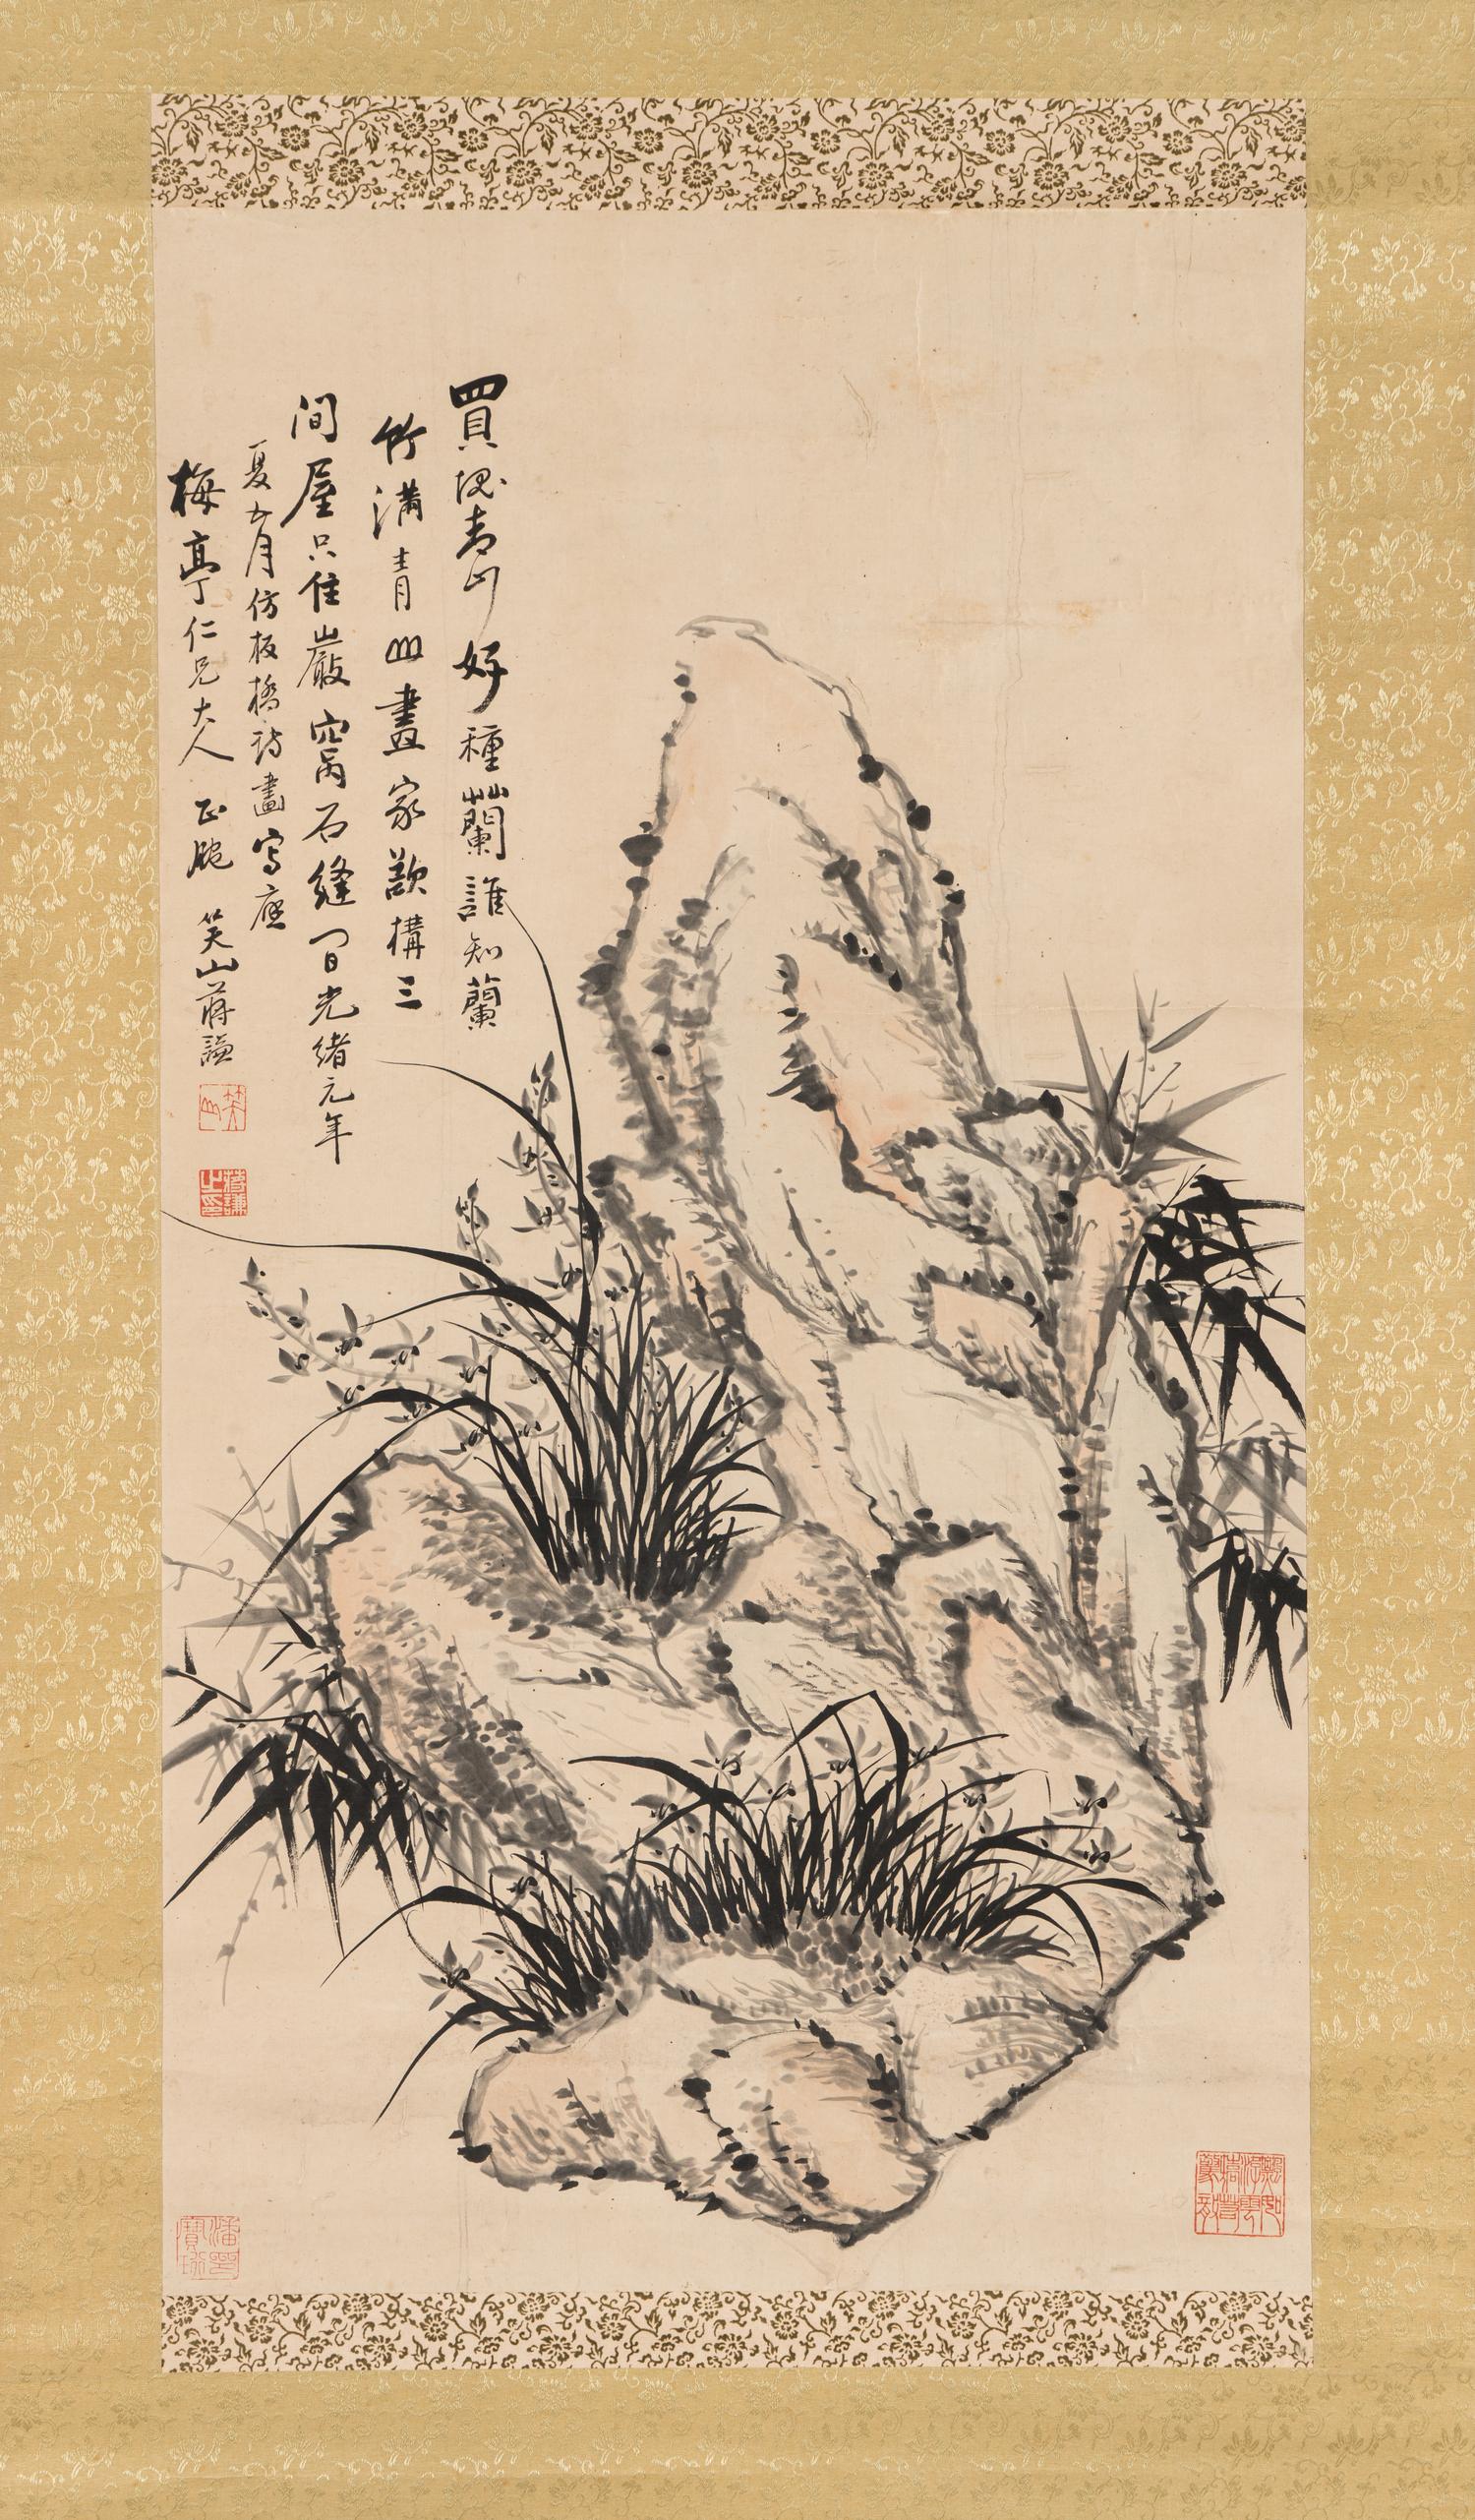 買塊青山好種蘭誰知蘭
竹滿青山畫家欲構三
间屋只住巖窩石縫间光緒元年
夏五月仿板橋詩畫寫應
梅亭仁兄大人 正腕 笑山蔣謙
笑山
蔣謙之印